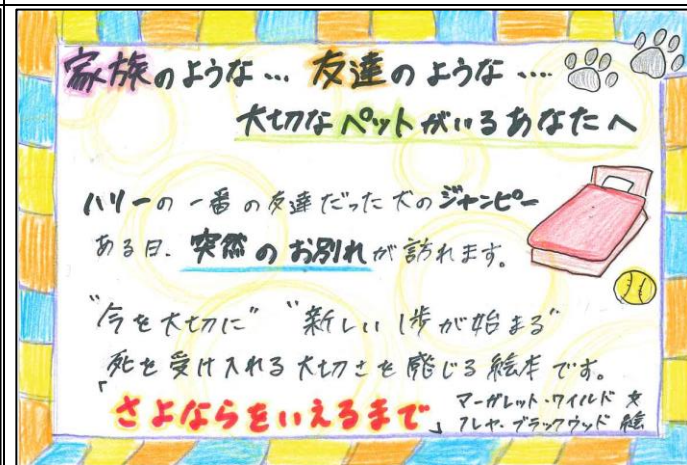 家族のような… 友達のような….
大切なペットがいるあなたへ
ハリーの一番の友達だった犬のジャンピー
ある日、突然のお別れが訪れます。
"今を大切に" "新しい1歩が始まる"
死を受け入れる大切さを感じる絵本です。
「さよならをいえるまで」 マーガレット・ワイルド 文
フレヤ・ブラックウッド 絵